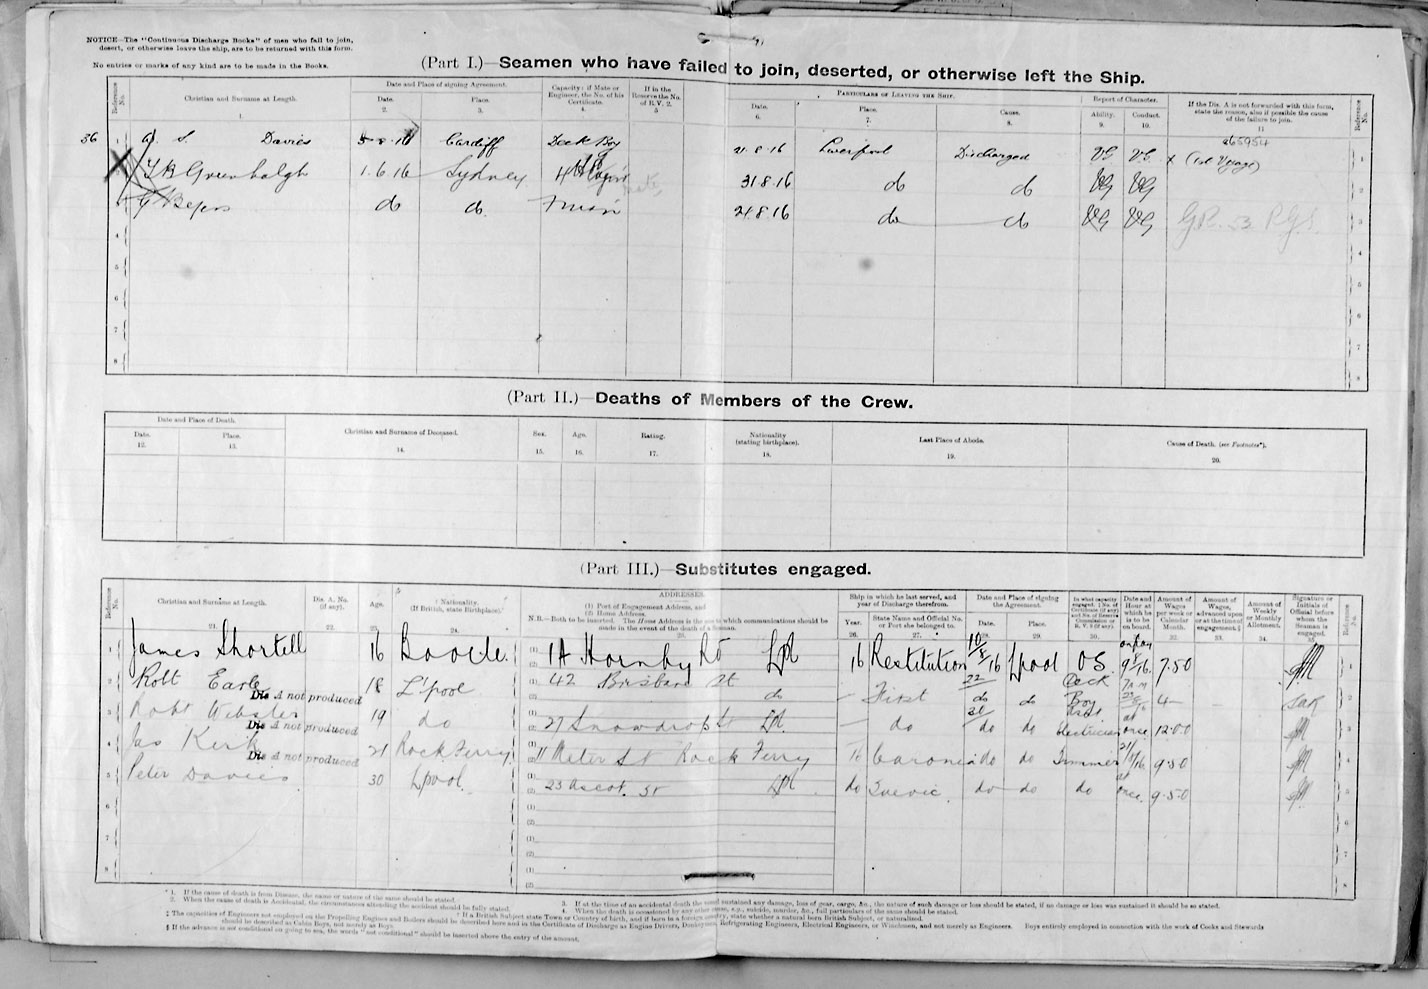 NOTICE—The "Continuous Discharge Books" of men who fail to join,
desert, or otherwise leave the ship, are to be returned with this form.
No entries or marks of any kind are to be made in the Books.
(Part I.)—Seamen who have failed to join, deserted, or otherwise left the Ship.
Reference No. Christian and Surname at Length. 1. Date and Place of signing Agreement. Date. 2. Place. 3. Capacity: if Mate or Engineer, the No. of his Certificate. 4. If in the Reserve the No. of R.V. 2. 5 Particulars of Leaving the Ship. Date. 6. Place. 7. Cause. 8. Report of Character. Ability. 9. Conduct. 10. If the Dis. A is not forwarded with this form, state the reason, also if possible the cause of the failure to join. 11 Reference No.
265954
36 1 S. Davies 16 Cardiff Deck Boy 21.8.16 Liverpool Discharged VG VG x (1st Voyage) 1
Greenhalgh 1.6.16 Sydney 31.8.16 do do VG VG
do do 24.8.16 do do VG VG 3
4
5
6
7 7
8 8
(Part II.)—Deaths of Members of the Crew.
Date and Place of Death. Date. 12. Place. 13. Christian and Surname of Deceased. 14. Sex. 15. Age. 16. Rating. 17. Nationality (stating birthplace). 18. Last Place of Abode. 19. Cause of Death. (see Footnotes*). 20.
(Part III.)—Substitutes engaged.
Reference No. Christian and Surname at Length. 21. Dis. A. No. (if any). 22. Age. 23. Nationality. (If British, state Birthplace). 24. ADDRESSES. (1) Port of Engagement Address, and (2) Home Address. N.B.—Both to be inserted. The Home Address is the one to which communications should be made in the event of the death of a Seaman. 25. Ship in which he last served, and year of Discharge therefrom. Year. 26. State Name and Official No. or Port she belonged to. 27. Date and Place of signing the Agreement. Date. 28. Place. 29. In what capacity engaged. 30. Date and Hour at which he is to be on board. 31. Amount of Wages per week or Calendar Month. 32. Amount of Wages, advanced upon or at the time of engagement.§ 33. Amount of Weekly or Monthly Allotment. 34. Signature or Initials of Official before whom the Seaman is engaged. 35 Reference No.
1 James Shortell 16 Bootle. (1) (2) 1A Hornby Rd Lpl 16 Restitution 10/8/16 Lpool OS. 9 16. 7.50 1
2 Robt Earle Dis A not produced 18 L'pool (1) (2) 42 Brisbane St do — First 22 do do Deck Boy 4— 2
3 Robt Webster Dis A not produced 19 do 27 Snowdrop St Lpl — do do do Electrician at once 12.0.0 3
4 Jas Kirk Dis A not produced 21 Rock Ferry 11 St Rock Ferry Caronia do do Trimmer 9.50 4
5 Peter Davies 30 Lpool. 23 Ascot. St Lpl do Suevic do do do at once. 9.5.0 5
6 6
7 7
8 8
* 1. If the cause of death is from Disease, the name or nature of the same should be stated.
2. When the cause of death is Accidental, the circumstances attending the accident should be fully stated.
3. If at the time of an accidental death the vessel sustained any damage, loss of gear, cargo, &c., the nature of such damage or loss should be stated, if no damage or loss was sustained it should be so stated.
4. When the death is occasioned by any other cause, e.g., suicide, murder, &c., full particulars of the same should be stated.
† If a British Subject state Town or Country of birth, and if born in a foreign country, state whether a natural born British Subject, or naturalised.
‡ The capacities of Engineers not employed on the Propelling Engines and Boilers should be described here and in the Certificate of Discharge as Engine Drivers, Donkeymen, Refrigerating Engineers, Electrical Engineers, or Winchmen, and not merely as Engineers. Boys entirely employed in connection with the work of Cooks and Stewards
should be described as Cabin Boys, not merely as Boys.
§ If the advance is not conditional on going to sea, the words "not conditional" should be inserted above the entry of the amount.